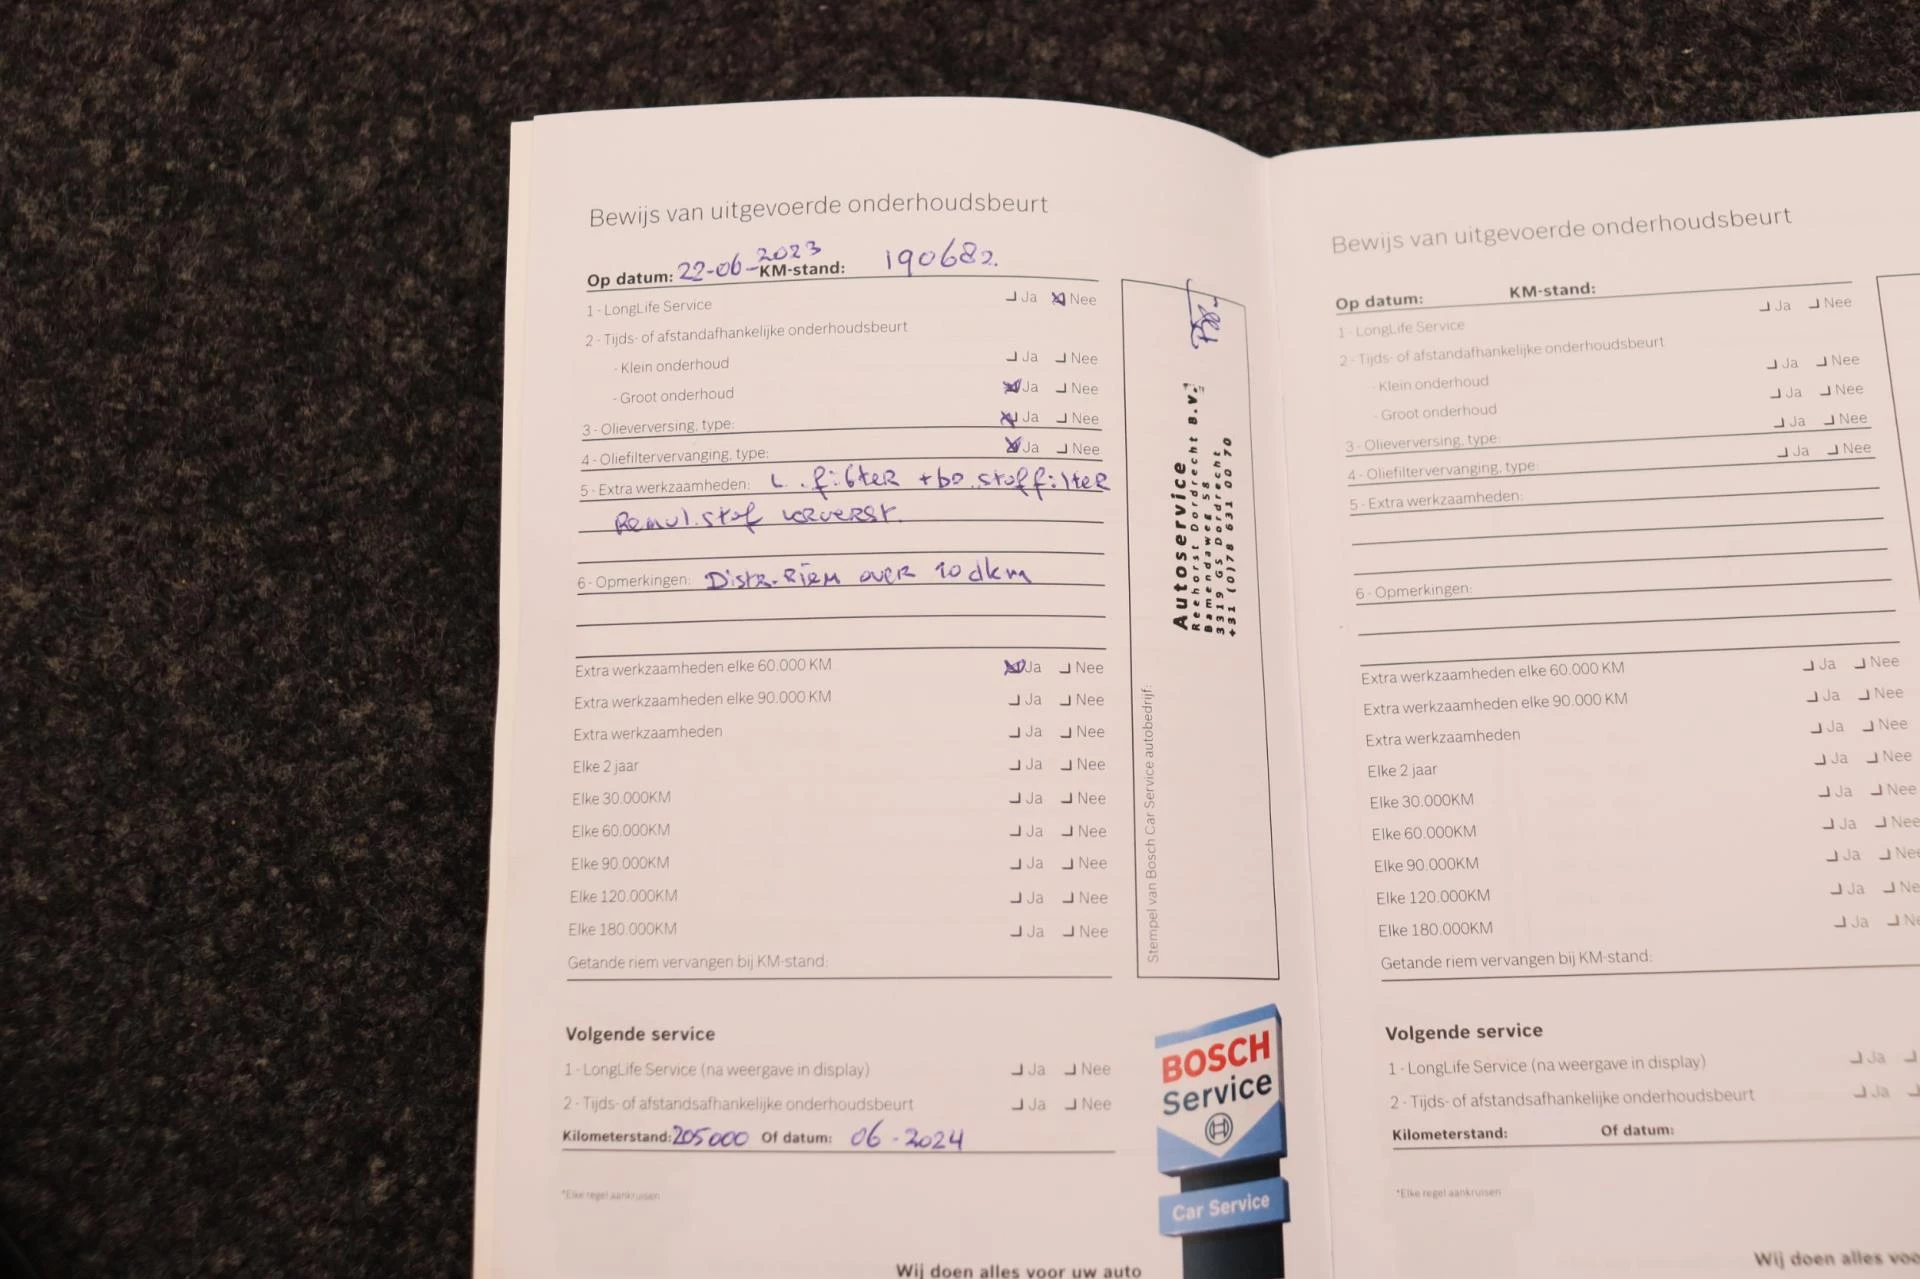 Bewijs van uitgevoerde onderhoudsbeurt
Op datum: 22-06-2023 KM-stand: 190682.
1 - LongLife Service Ja Nee
2 - Tijds- of afstandafhankelijke onderhoudsbeurt
- Klein onderhoud Ja Nee
- Groot onderhoud Ja Nee
3 - Olieverversing, type: Ja Nee
4 - Oliefiltervervanging, type: Ja Nee
5 - Extra werkzaamheden: L. filter + br. stoffilter
Remvl.stof ververst.
6 - Opmerkingen: Distr. Riem over 10 dkm
Extra werkzaamheden elke 60.000 KM Ja Nee
Extra werkzaamheden elke 90.000 KM Ja Nee
Extra werkzaamheden Ja Nee
Elke 2 jaar Ja Nee
Elke 30.000KM Ja Nee
Elke 60.000KM Ja Nee
Elke 90.000KM Ja Nee
Elke 120.000KM Ja Nee
Elke 180.000KM Ja Nee
Getande riem vervangen bij KM-stand:
Stempel van Bosch Car Service autobedrijf:
Autoservice
Reehorst Dordrecht B.V.
Bamendaweg 58
3319 GS Dordrecht
+31 (0)78 631 00 70
Volgende service
1 - LongLife Service (na weergave in display) Ja Nee
2 - Tijds- of afstandsafhankelijke onderhoudsbeurt Ja Nee
Kilometerstand: 205000 Of datum: 06 - 2024
*Elke regel aankruisen
BOSCH
Service
Car Service
Wij doen alles voor uw auto
Bewijs van uitgevoerde onderhoudsbeurt
Op datum: KM-stand:
1 - LongLife Service Ja Nee
2 - Tijds- of afstandafhankelijke onderhoudsbeurt
- Klein onderhoud Ja Nee
- Groot onderhoud Ja Nee
3 - Olieverversing, type: Ja Nee
4 - Oliefiltervervanging, type: Ja Nee
5 - Extra werkzaamheden:
6 - Opmerkingen:
Extra werkzaamheden elke 60.000 KM Ja Nee
Extra werkzaamheden elke 90.000 KM Ja Nee
Extra werkzaamheden Ja Nee
Elke 2 jaar Ja Nee
Elke 30.000KM Ja Nee
Elke 60.000KM Ja Nee
Elke 90.000KM Ja Nee
Elke 120.000KM Ja Ne
Elke 180.000KM Ja Ne
Getande riem vervangen bij KM-stand:
Volgende service
1 - LongLife Service (na weergave in display) Ja
2 - Tijds- of afstandsafhankelijke onderhoudsbeurt Ja
Kilometerstand: Of datum:
*Elke regel aankruisen
Wij doen alles voo